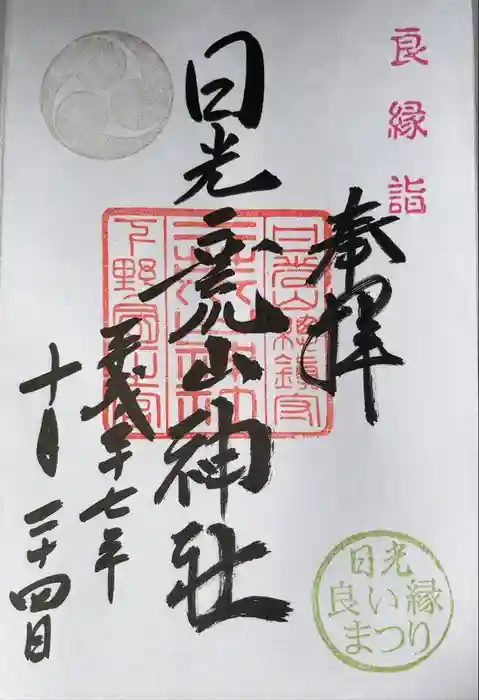 良縁詣
奉拝
日光二荒山神社
平成二十七年
十月二十四日
日光山總鎮守
二荒山神社
下野國一宮
日光
良い縁
まつり